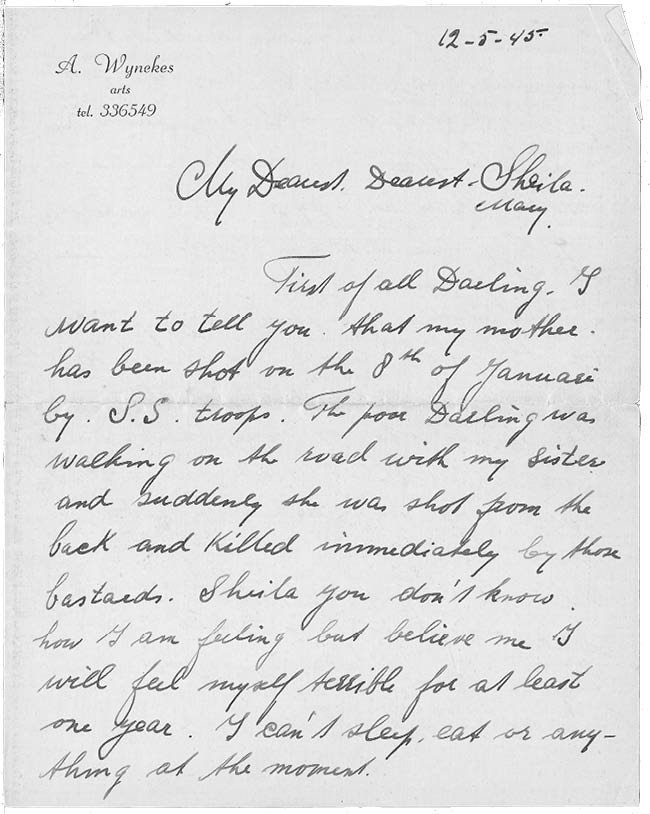 12-5-45
A. Wynekes
arts
tel. 336549
My Dearest. Dearest - Sheila.
Mary.
First of all Darling. I
want to tell you. that my mother.
has been shot on the 8th of Januari
by. S.S. troops. The poor Darling was
walking on the road with my sister
and suddenly she was shot from the
back and Killed immediately by those
bastards. Sheila you don't know.
how I am feeling but believe me I
will feel myself terrible for at least
one year. I can't sleep, eat or any-
thing at the moment.